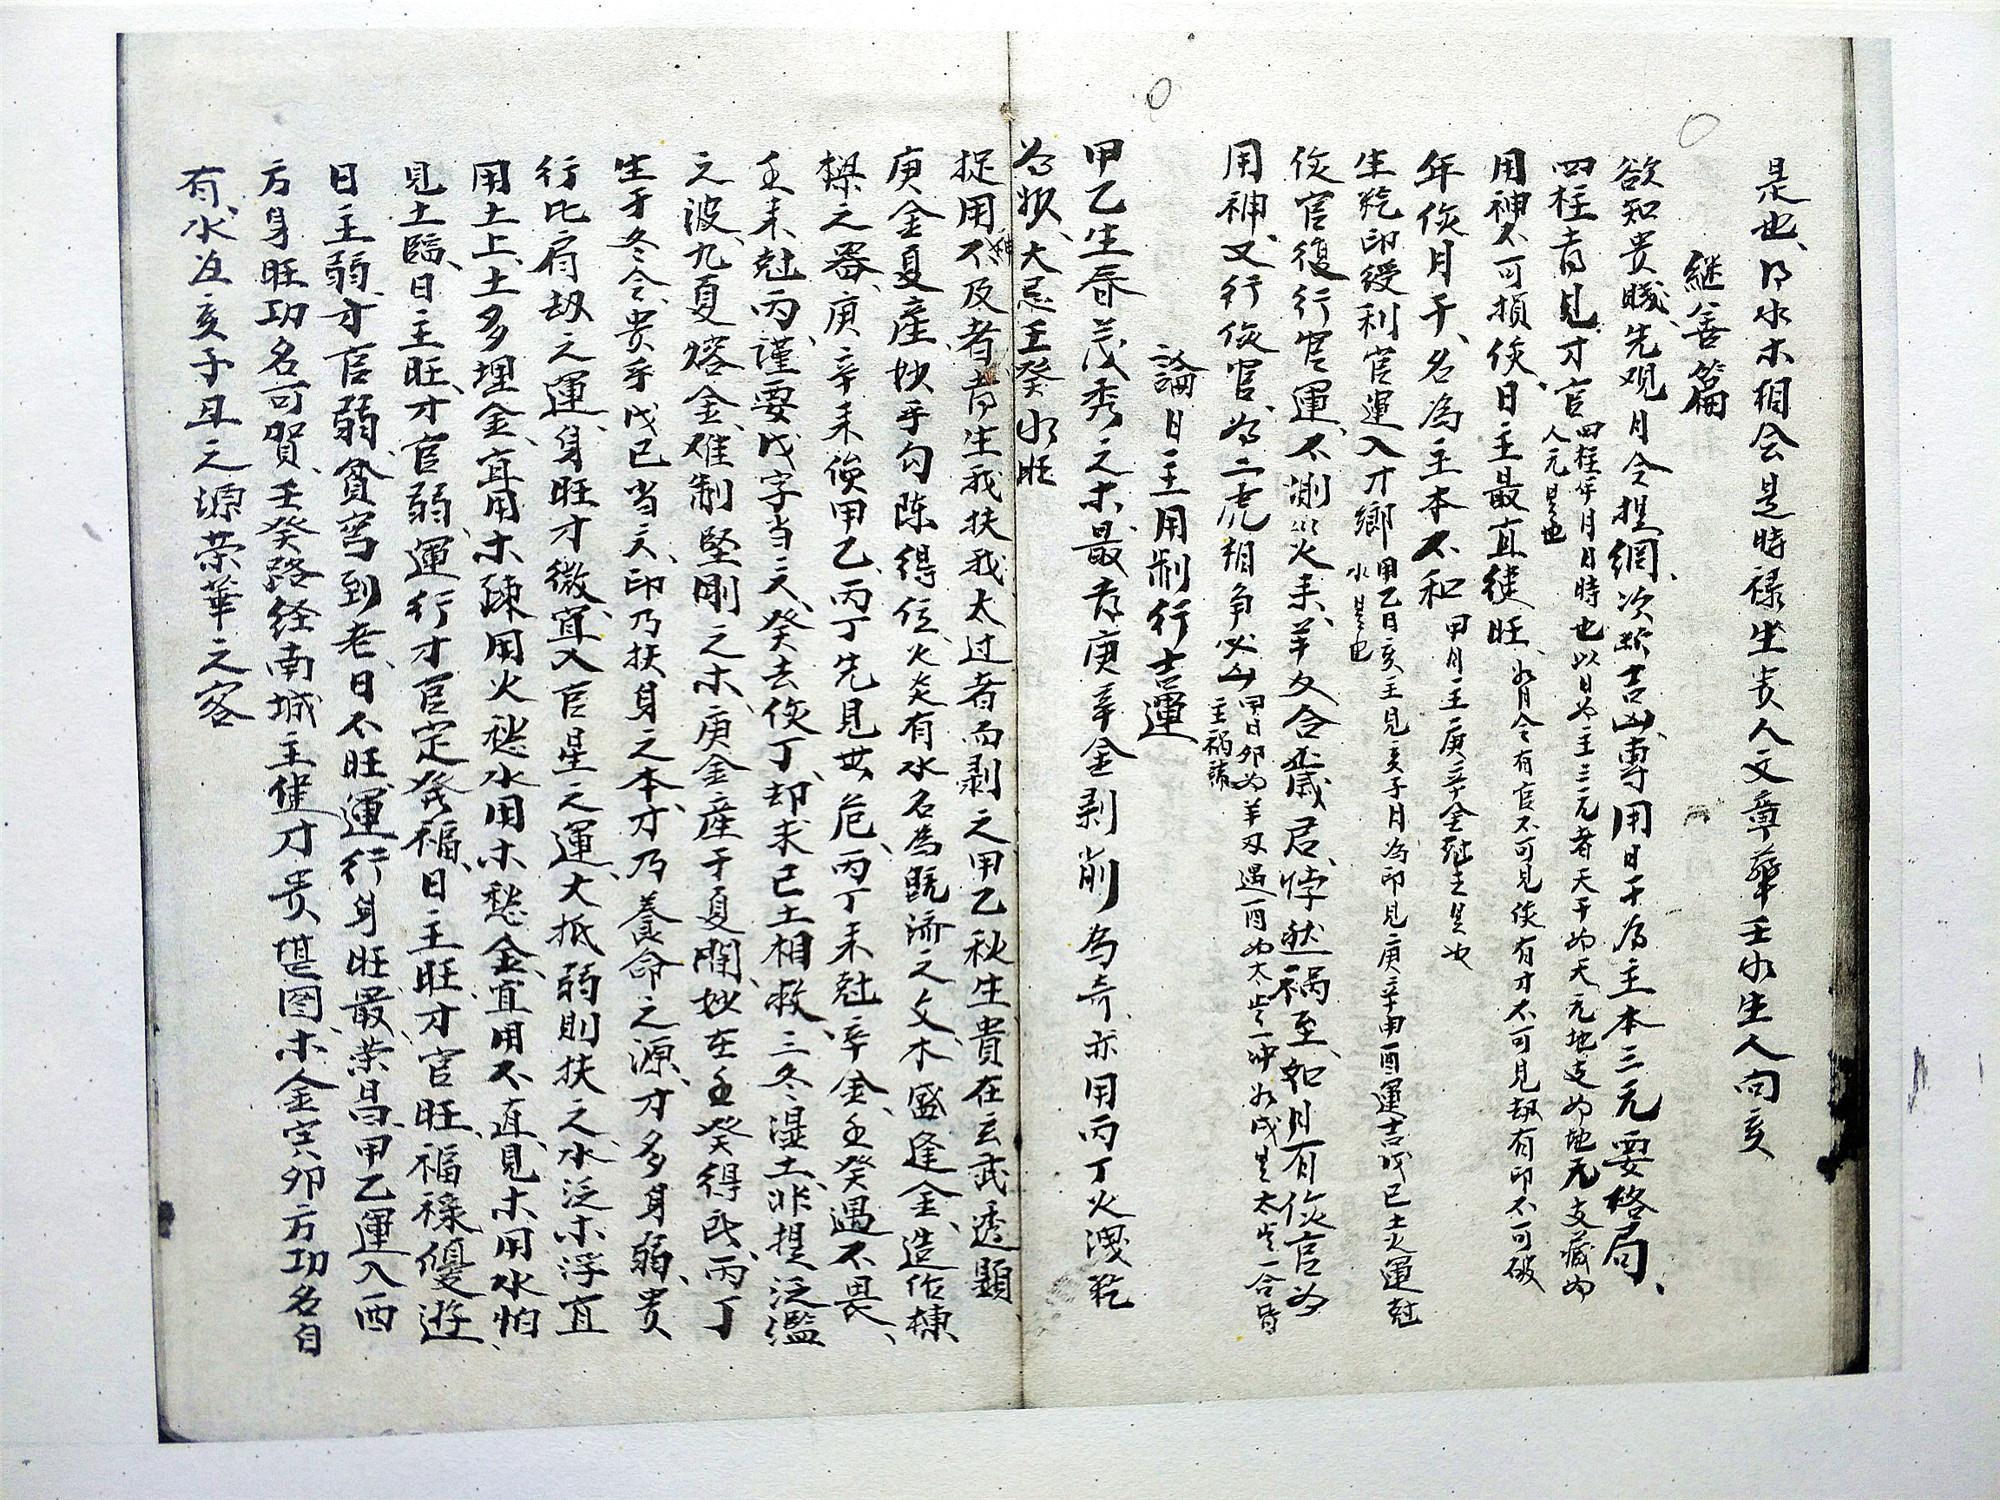 是也、乃水木相会是時禄坐贵人文章華壬水生入向亥
継善篇
欲知贵賎、先观月令提綱、次断吉凶、専用日干为主本三元要格局、
四柱者見才官、四柱年月日時也以日为主三元者天干为天元地支为地元支藏为
人元是也
用神不可損傷、日主最宜徤旺、如月令有官不可見傷有才不可見刼有印不可破
年傷月干、名為主本不和甲月主庚辛金尅之是也
生乾印綬利官運入才鄉甲乙日亥主見亥子月為印見庚辛申酉運吉戊己土火運尅
水是也
傷官復行官運、不測災来、羊刃合歲君、悖然祸至、如月有傷官为
用神、又行傷官、为二虎相争必凶甲日卯为羊刃遇酉为太歲一冲如戌是太歲一合皆
主祸請
論日主用制行吉運
甲乙生春茂秀之木、最喜庚辛金剥削為奇、亦用丙丁火洩乾
为损、大忌壬癸水旺
捉用不及者、者生我扶我太过者而剥之甲乙秋生貴在玄武透題
庚金夏産、妙乎勾陈得位、火炎有水名為既济之文、木盛逢金、造作棟
樑之器、庚辛来傷甲乙、丙丁先見無危、丙丁来尅辛金、壬癸遇不畏、
壬来尅丙、謹要戊字当头、癸去傷丁、却求己土相救、三冬湿土、非提泛濫
之波、九夏熔金、难制堅剛之木、庚金産于夏閒、妙在壬癸得氏、丙丁
生于冬令、贵乎戊己当头、印乃扶身之本、才乃養命之源、才多身弱、贵
行比肩刼之運、身旺才微、宜入官星之運、大抵弱則扶之、水泛木浮宜
用土上、土多埋金、宜用木疎用火愁水用木愁金、宜用不宜、見木用水怕
見土臨、日主旺、才官弱、運行才官定発福、日主旺、才官旺、福禄優遊
日主弱、才官弱、貧窮到老、日不旺、運行身旺最荣昌、甲乙運入西
方身旺功名可贺、壬癸路经南城主健才贵、堪图、木金寅卯方功名自
有、水泣亥子丑之源荣華之客